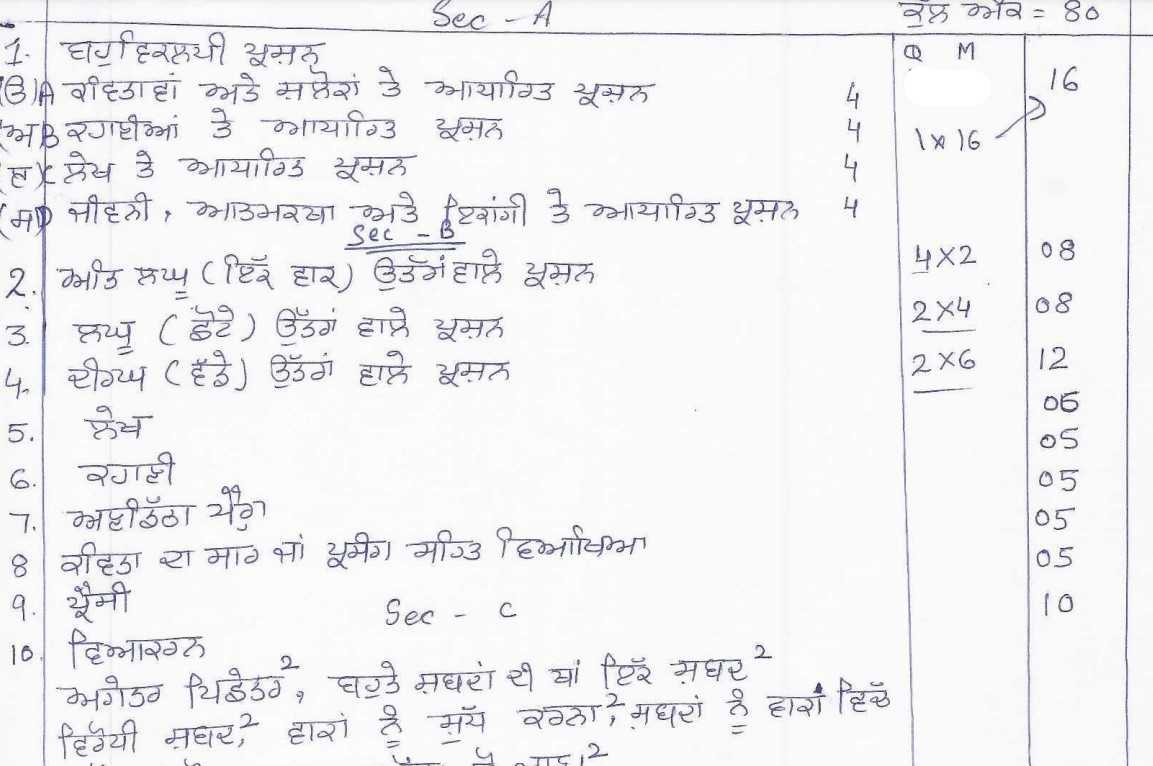 Sec - A ਕੁੱਲ ਅੰਕ = 80
Q M
1. ਬਹੁਵਿਕਲਪੀ ਪ੍ਰਸ਼ਨ 16
(ੳ)A ਕਵਿਤਾਵਾਂ ਅਤੇ ਸਲੋਕਾਂ ਤੇ ਆਧਾਰਿਤ ਪ੍ਰਸ਼ਨ 4
(ਅ)B ਕਹਾਣੀਆਂ ਤੇ ਆਧਾਰਿਤ ਪ੍ਰਸ਼ਨ 4 1x16
(ੲ)C ਲੇਖ ਤੇ ਆਧਾਰਿਤ ਪ੍ਰਸ਼ਨ 4
(ਸ)D ਜੀਵਨੀ, ਆਤਮਕਥਾ ਅਤੇ ਇਕਾਂਗੀ ਤੇ ਆਧਾਰਿਤ ਪ੍ਰਸ਼ਨ 4
Sec - B
2. ਅਤਿ ਲਘੂ (ਇੱਕ ਵਾਕ) ਉੱਤਰਾਂ ਵਾਲੇ ਪ੍ਰਸ਼ਨ 4x2 08
3. ਲਘੂ (ਛੋਟੇ) ਉੱਤਰਾਂ ਵਾਲੇ ਪ੍ਰਸ਼ਨ 2x4 08
4. ਦੀਰਘ (ਵੱਡੇ) ਉੱਤਰਾਂ ਵਾਲੇ ਪ੍ਰਸ਼ਨ 2x6 12
5. ਲੇਖ 06
6. ਕਹਾਣੀ 05
7. ਅਣਡਿੱਠਾ ਪੈਰ੍ਹਾ 05
8 ਕਵਿਤਾ ਦਾ ਸਾਰ ਜਾਂ ਪ੍ਰਸੰਗ ਸਹਿਤ ਵਿਆਖਿਆ 05
9. ਪ੍ਰੈਸੀ 05
Sec - C
10. ਵਿਆਕਰਨ 10
ਅਗੇਤਰ ਪਿਛੇਤਰ², ਬਹੁਤੇ ਸ਼ਬਦਾਂ ਦੀ ਥਾਂ ਇੱਕ ਸ਼ਬਦ²
ਵਿਰੋਧੀ ਸ਼ਬਦ,² ਵਾਕਾਂ ਨੂੰ ਸ਼ੁੱਧ ਕਰਨਾ,² ਸ਼ਬਦਾਂ ਨੂੰ ਵਾਕਾਂ ਵਿੱਚ